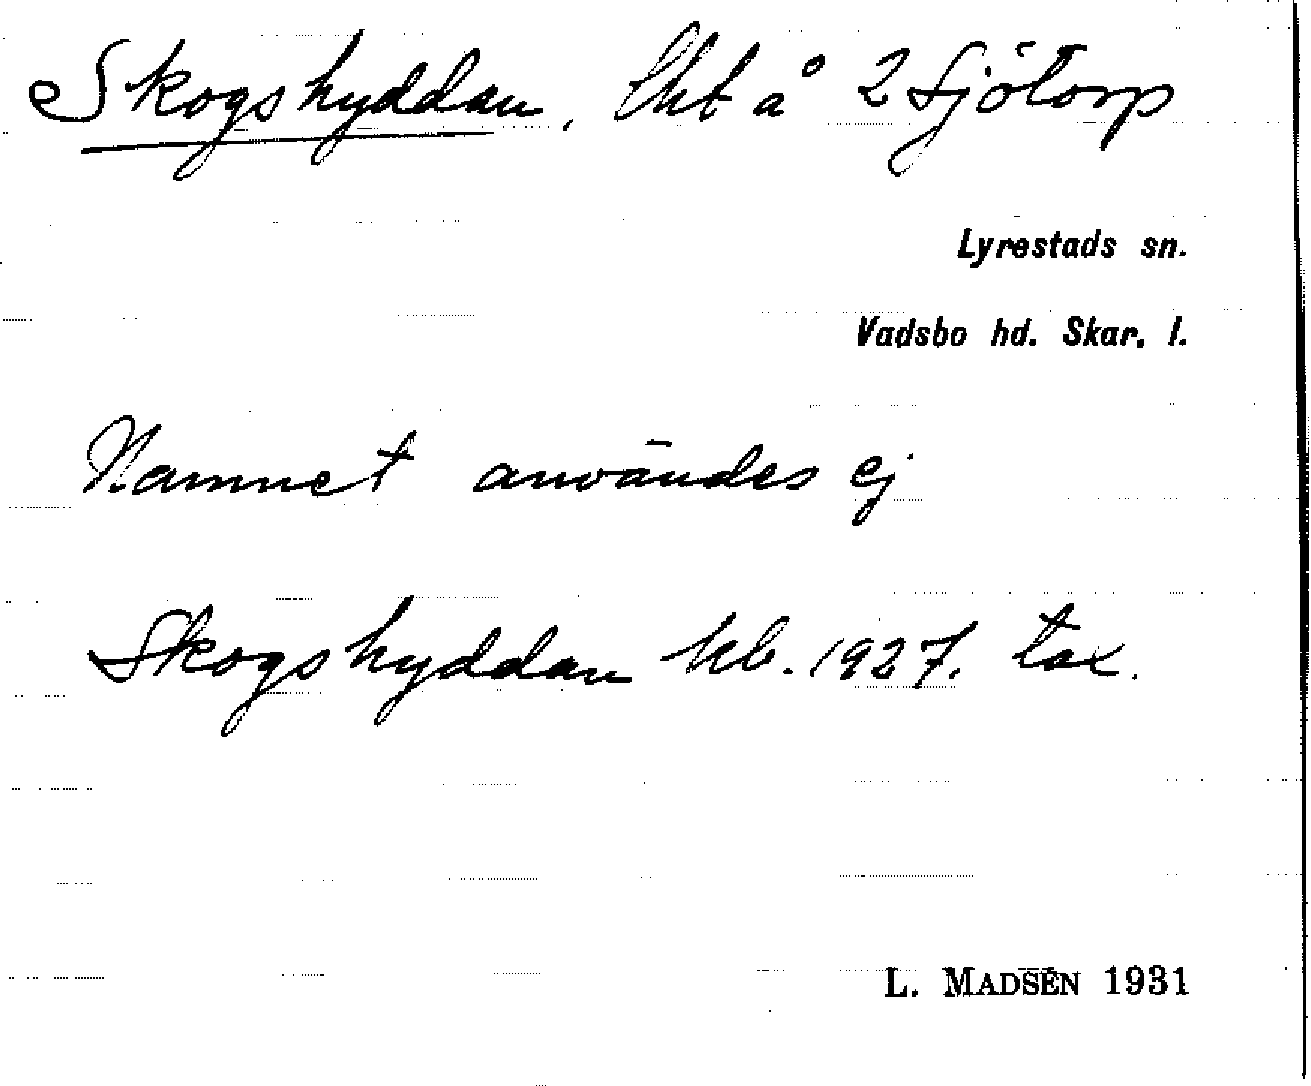 Skogshyddan, lht å 2 Sjötorp
Lyrestads sn.
Vadsbo hd. Skar. l.
Namnet användes ej
Skogshyddan kb. 1927. tax.
L. MADSÉN 1931